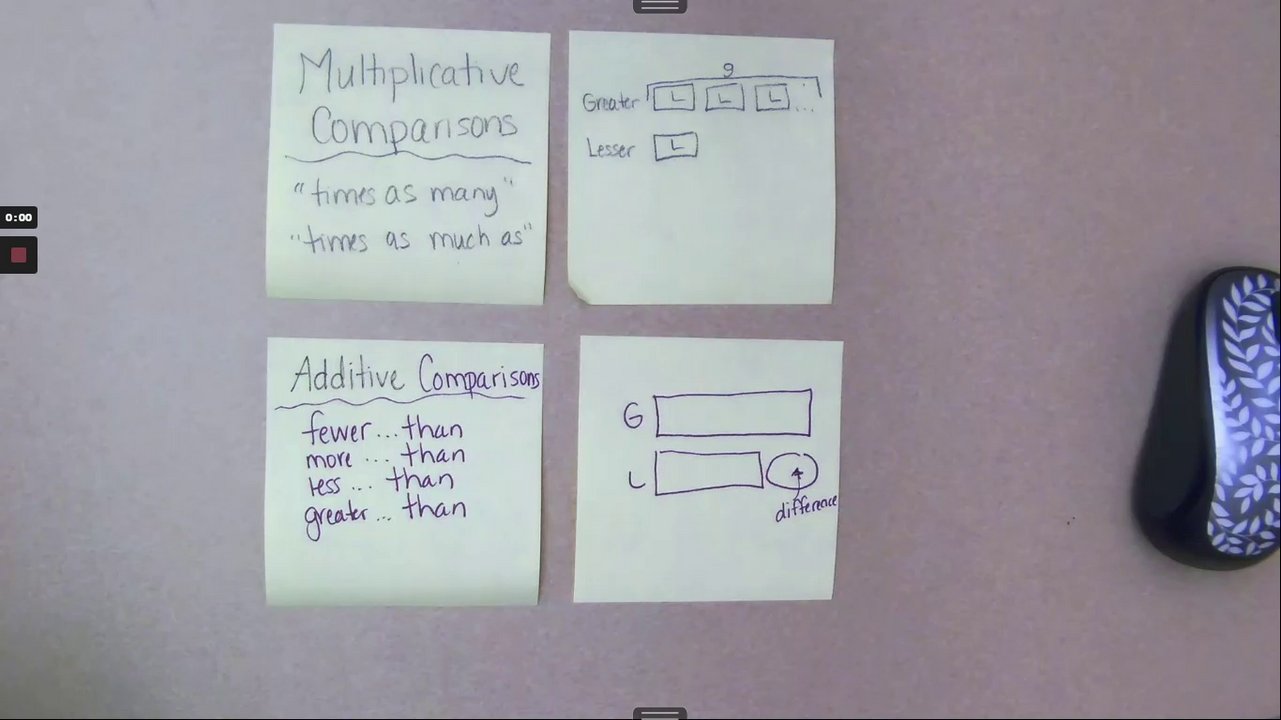 Multiplicative
Comparisons
"times as many"
"times as much as"
g
Greater L L L ...
Lesser L
Additive Comparisons
fewer ... than
more ... than
less ... than
greater ... than
G
L
difference
0:00